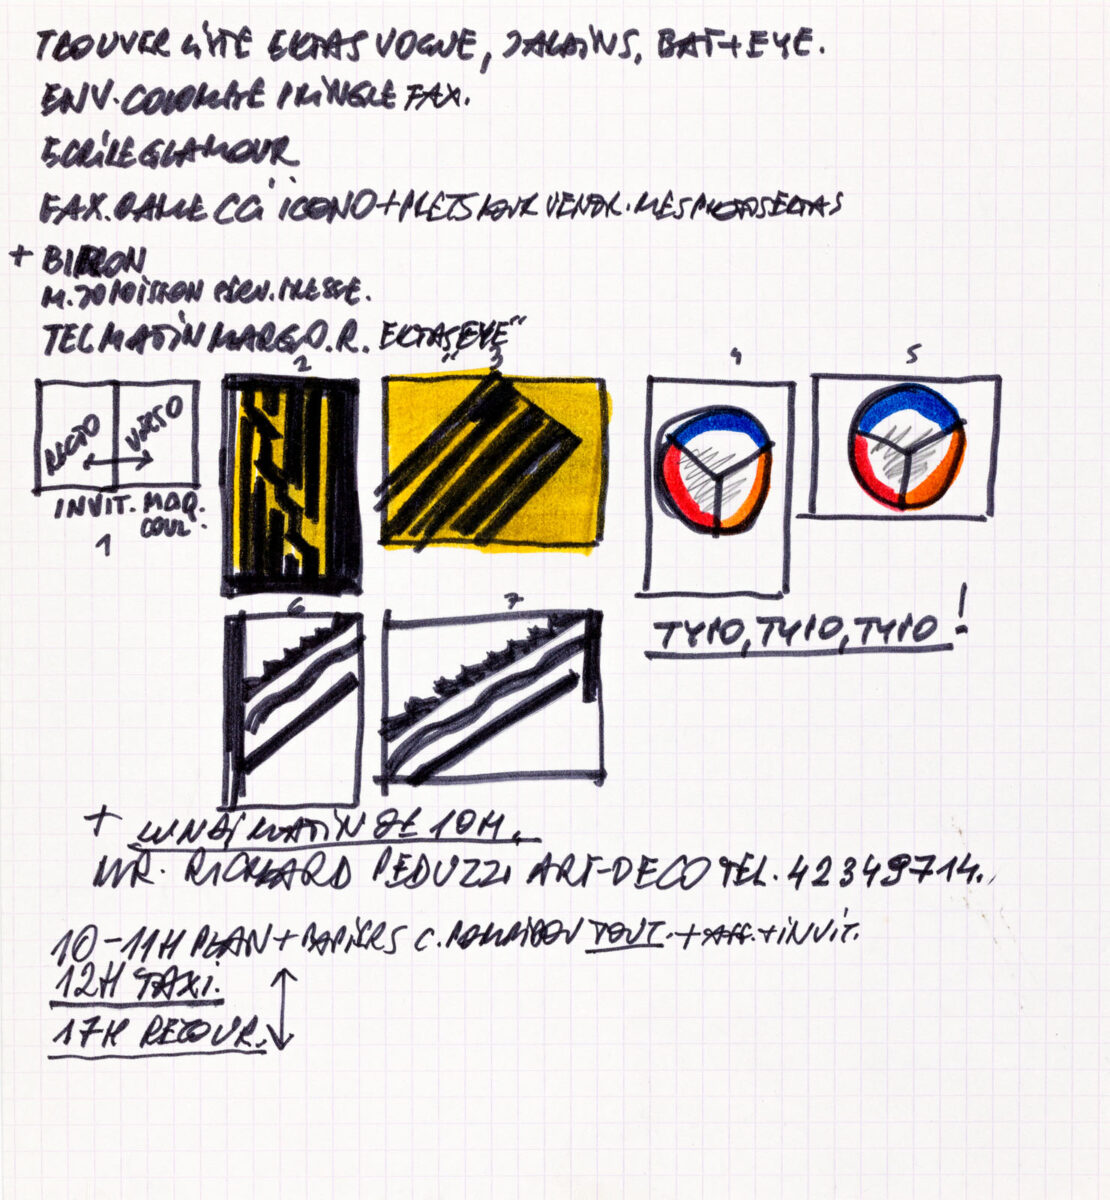 TROUVER VITE EKTAS VOGUE, JALAINS, BAT + EYE.
ENV. COLOMBE PRINGLE FAX.
ECRIRE GLAMOUR
FAX. DAME CCI ICONO + PRETS POUR VENDR. MES PHOTOS EKTAS
+ BIRON
M. JO POISSON SERV. PRESSE.
TEL MATIN MARGO. R. EKTAS "EYE"
2 3 4 5
RECTO VERSO
INVIT. MAQ.
COUL.
1
6 7
TYPO, TYPO, TYPO !
+ LUNDI MATIN DE 10H.
MR. RICHARD PEDUZZI ART-DECO TEL. 42349714.
10-11H PLAN + PAPIERS C. POMPIDOU TOUT. + AFF. + INVIT.
12H TAXI.
17H RETOUR.